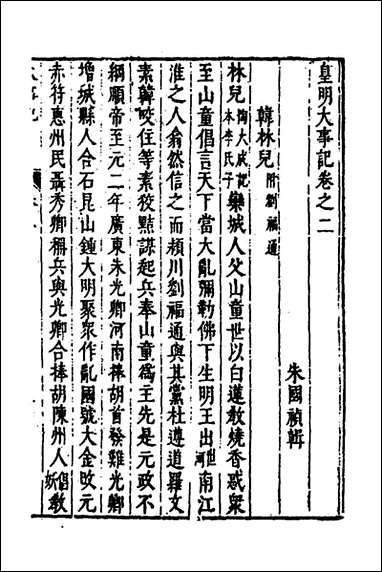 皇明大事記卷之二
朱國禎輯
韓林兒附劉福通
林兒陶大成記本李氏子欒城人父山童世以白蓮教燒香惑衆
至山童倡言天下當大亂彌勒佛下生明王出世河南江
淮之人翕然信之而頴川劉福通與其黨杜遵道羅文
素韓咬住等素狡黠謀起兵奉山童爲主先是元政不
綱順帝至元二年廣東朱光卿河南棒胡首發難光卿
增城縣人合石昆山鍾大明聚衆作亂國號大金改元
赤符惠州民聶秀卿稱兵與光卿合捧胡陳州人倡妖教